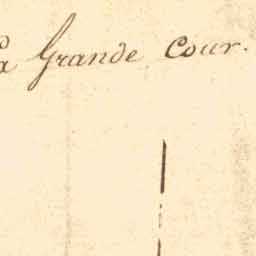 La Grande Cour.